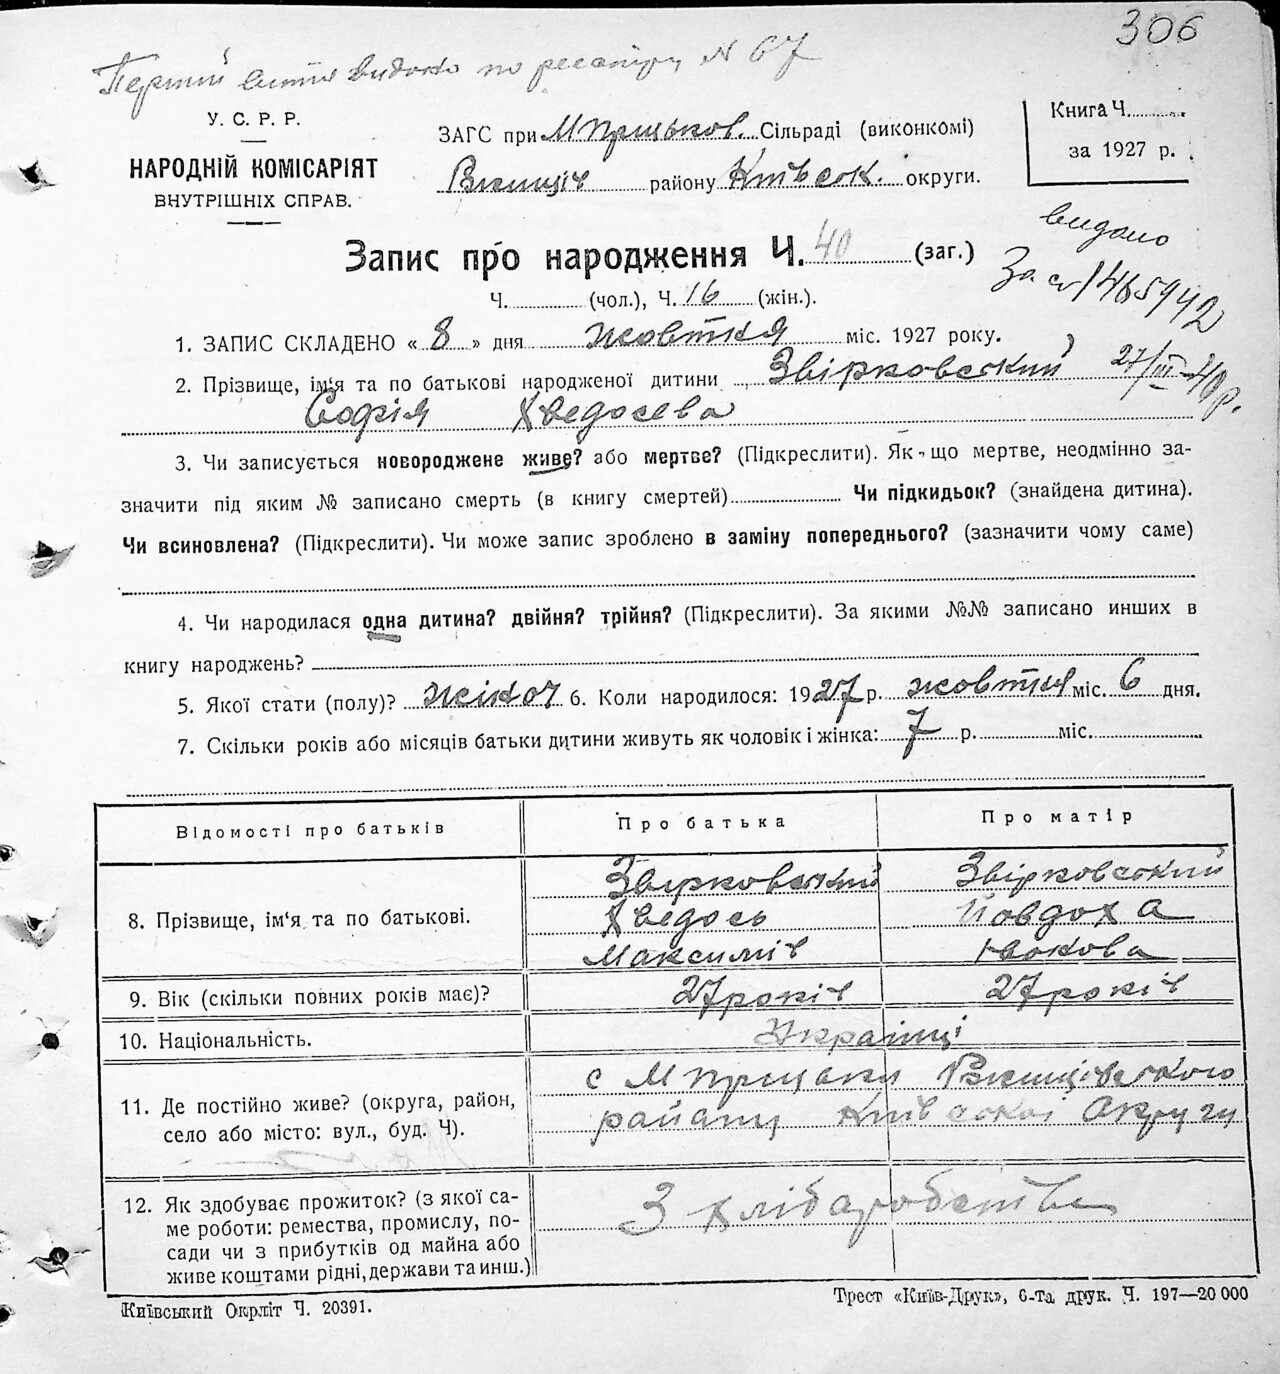 306
Перший витяг видано по реєстру № 67
У. С. Р. Р.
НАРОДНІЙ КОМІСАРІЯТ
ВНУТРІШНІХ СПРАВ.
ЗАГС при М Прицьков. Сільраді (виконкомі)
району Київськ. округи.
Книга Ч.
за 1927 р.
видано
Запис про народження Ч. 40 (заг.)
Ч. (чол.), Ч. 16 (жін.).
1465942
27/III-40р.
1. ЗАПИС СКЛАДЕНО « 8 » дня жовтня міс. 1927 року.
2. Прізвище, ім'я та по батькові народженої дитини Звірковский
Софія Хведосєва
3. Чи записується новороджене живе? або мертве? (Підкреслити). Як-що мертве, неодмінно за-
значити під яким № записано смерть (в книгу смертей) Чи підкидьок? (знайдена дитина).
Чи всиновлена? (Підкреслити). Чи може запис зроблено в заміну попереднього? (зазначити чому саме)
4. Чи народилася одна дитина? двійня? трійня? (Підкреслити). За якими №№ записано инших в
книгу народжень?
5. Якої стати (полу)? жіноч 6. Коли народилося: 1927 р. жовтня міс. 6 дня.
7. Скільки років або місяців батьки дитини живуть як чоловік і жінка: 7 р. міс.
Відомості про батьків
Про батька
Про матір
8. Прізвище, ім'я та по батькові.
Звірковский
Хведось
Максимів
Звірковский
Йовдоха
9. Вік (скільки повних років має)?
27 років
27 років
10. Національність.
Українці
11. Де постійно живе? (округа, район,
село або місто: вул., буд. Ч).
с М Прицьки
району Київської Округи
12. Як здобуває прожиток? (з якої са-
ме роботи: ремества, промислу, по-
сади чи з прибутків од майна або
живе коштами рідні, держави та инш.)
З хліборобства
Київський Окрліт Ч. 20391.
Трест «Київ-Друк», 6-та друк. Ч. 197—20 000